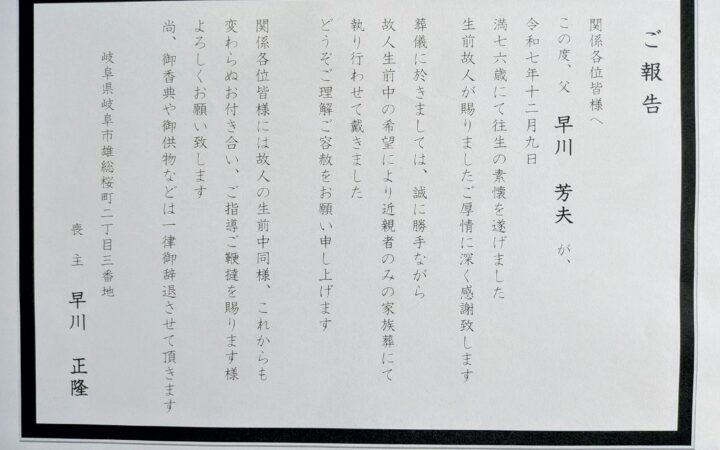 ご報告
関係各位皆様へ
この度、父 早川 芳夫 が、
令和七年十二月九日
満七六歳にて往生の素懐を遂げました
生前故人が賜りましたご厚情に深く感謝致します
葬儀に於きましては、誠に勝手ながら
故人生前中の希望により近親者のみの家族葬にて
執り行わせて戴きました
どうぞご理解ご容赦をお願い申し上げます
関係各位皆様には故人の生前中同様、これからも
変わらぬお付き合い、ご指導ご鞭撻を賜ります様
よろしくお願い致します
尚、御香典や御供物などは一律御辞退させて頂きます
岐阜県岐阜市雄総桜町二丁目三番地
喪主 早川 正隆